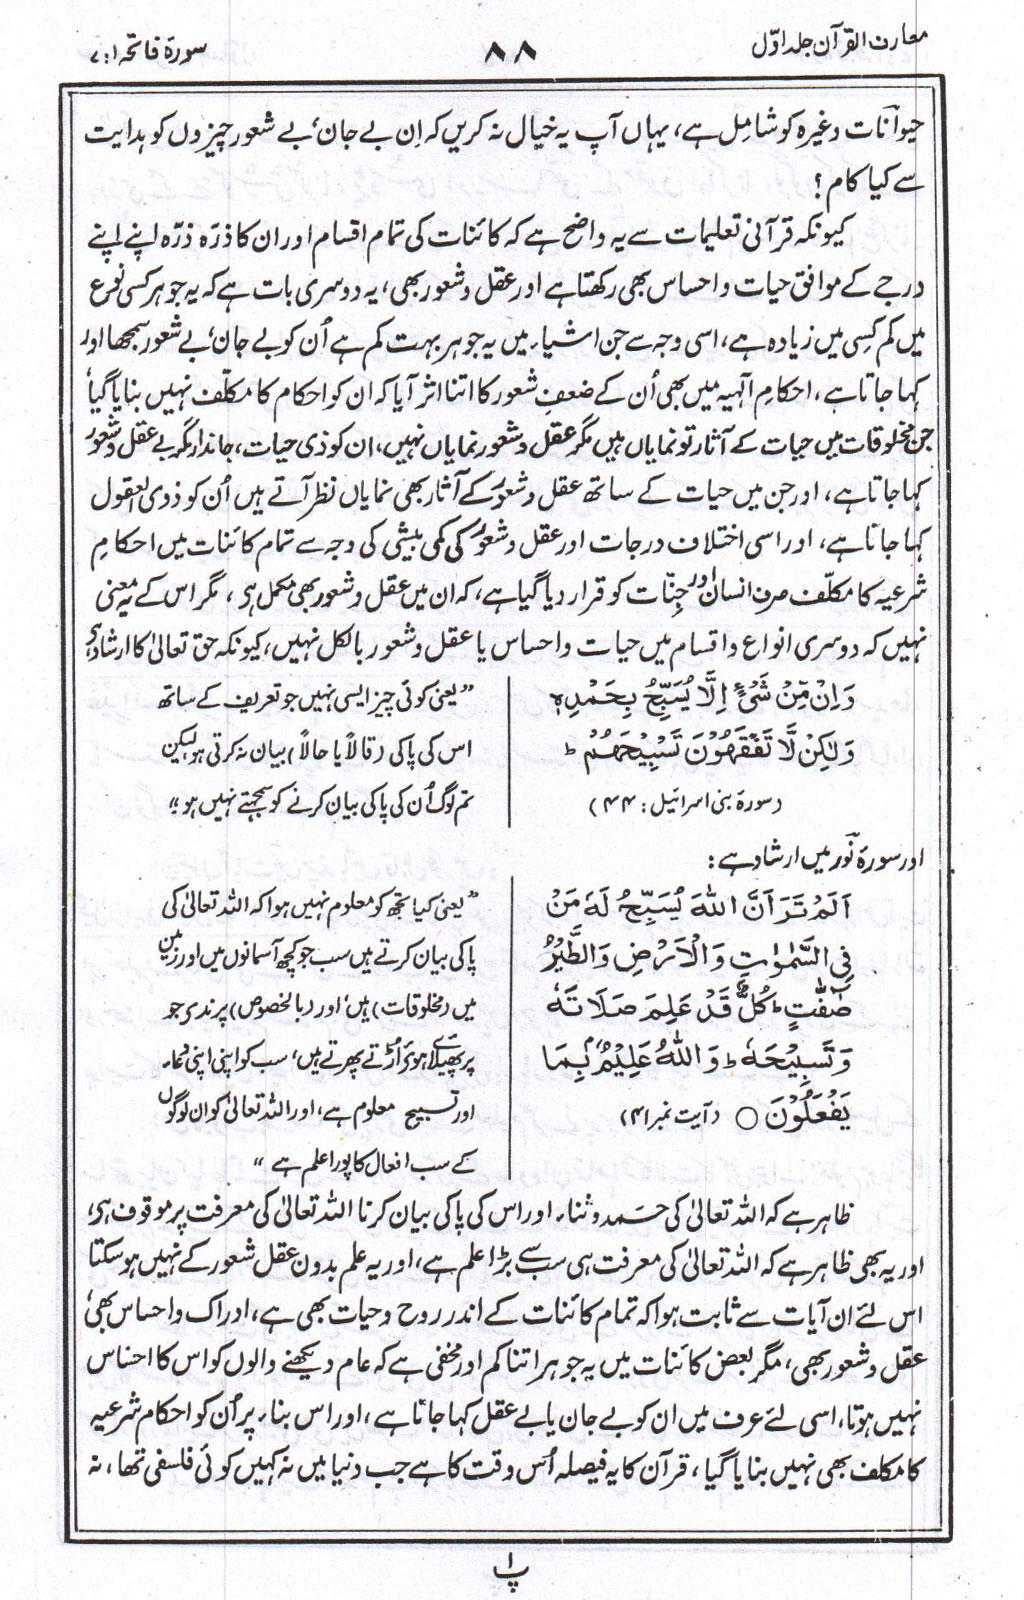 معارف القرآن جلد اوّل
۸۸
سورۃ فاتحہ ۱ : ۷
حیوانات وغیرہ کو شامل ہے، یہاں آپ یہ خیال نہ کریں کہ اِن بے جان، بے شعور چیزوں کو ہدایت
سے کیا کام ؟
کیونکہ قرآنی تعلیمات سے یہ واضح ہے کہ کائنات کی تمام اقسام اور ان کا ذرّہ ذرّہ اپنے اپنے
درجے کے موافق حیات و احساس بھی رکھتا ہے اور عقل و شعور بھی، یہ دوسری بات ہے کہ یہ جوہر کسی نوع
میں کم کسی میں زیادہ ہے، اسی وجہ سے جن اشیاء میں یہ جوہر بہت کم ہے اُن کو بے جان، بے شعور سمجھا اور
کہا جاتا ہے، احکامِ الٰہیہ میں بھی اُن کے ضعفِ شعور کا اتنا اثر آیا کہ ان کو احکام کا مکلّف نہیں بنایا گیا،
جن مخلوقات میں حیات کے آثار تو نمایاں ہیں مگر عقل و شعور نمایاں نہیں، ان کو ذی حیات، جاندار مگر بے عقل و شعور
کہا جاتا ہے، اور جن میں حیات کے ساتھ عقل و شعور کے آثار بھی نمایاں نظر آتے ہیں اُن کو ذوی العقول
کہا جاتا ہے، اور اسی اختلاف درجات اور عقل و شعور کی کمی بیشی کی وجہ سے تمام کائنات میں احکامِ
شرعیہ کا مکلّف صرف انسان اور جِنّات کو قرار دیا گیا ہے، کہ ان میں عقل و شعور بھی مکمل ہے، مگر اس کے یہ معنی
نہیں کہ دوسری انواع و اقسام میں حیات و احساس یا عقل و شعور بالکل نہیں، کیونکہ حق تعالیٰ کا ارشاد ہے
وَاِنْ مِّنْ شَیْءٍ اِلَّا یُسَبِّحُ بِحَمْدِہٖ
وَلٰکِنْ لَّا تَفْقَھُوْنَ تَسْبِیْحَھُمْ ط
(سورۃ بنی اسرائیل : ۴۴)
”یعنی کوئی چیز ایسی نہیں جو تعریف کے ساتھ
اس کی پاکی (قالاً یا حالاً) بیان نہ کرتی ہو لیکن
تم لوگ اُن کی پاکی بیان کرنے کو سمجھتے نہیں ہو“
اور سورۃ نور میں ارشاد ہے :
اَلَمْ تَرَ اَنَّ اللّٰہَ یُسَبِّحُ لَہٗ مَنْ
فِی السَّمٰوٰتِ وَالْاَرْضِ وَالطَّیْرُ
صٰٓفّٰتٍ ط کُلٌّ قَدْ عَلِمَ صَلَاتَہٗ
وَتَسْبِیْحَہٗ ط وَاللّٰہُ عَلِیْمٌۢ بِمَا
یَفْعَلُوْنَ ○ (آیت نمبر ۴۱)
”یعنی کیا تجھ کو معلوم نہیں ہوا کہ اللہ تعالیٰ کی
پاکی بیان کرتے ہیں سب جو کچھ آسمانوں میں اور زمین
میں (مخلوقات) ہیں، اور (بالخصوص) پرندے جو
پر پھیلائے ہوئے اُڑتے پھرتے ہیں، سب کو اپنی اپنی دُعاء
اور تسبیح معلوم ہے، اور اللہ تعالیٰ کو ان لوگوں
کے سب افعال کا پورا علم ہے“
ظاہر ہے کہ اللہ تعالیٰ کی حمد و ثناء اور اس کی پاکی بیان کرنا اللہ تعالیٰ کی معرفت پر موقوف ہے،
اور یہ بھی ظاہر ہے کہ اللہ تعالیٰ کی معرفت ہی سب سے بڑا علم ہے، اور یہ علم بدون عقل شعور کے نہیں ہو سکتا
اس لئے ان آیات سے ثابت ہوا کہ تمام کائنات کے اندر روح و حیات بھی ہے، ادراک و احساس بھی،
عقل و شعور بھی، مگر بعض کائنات میں یہ جوہر اتنا کم اور مخفی ہے کہ عام دیکھنے والوں کو اس کا احساس
نہیں ہوتا، اسی لئے عرف میں ان کو بے جان یا بے عقل کہا جاتا ہے، اور اس بناء پر اُن کو احکام شرعیہ
کا مکلف بھی نہیں بنایا گیا، قرآن کا یہ فیصلہ اُس وقت کا ہے جب دنیا میں نہ کہیں کوئی فلسفی تھا، نہ